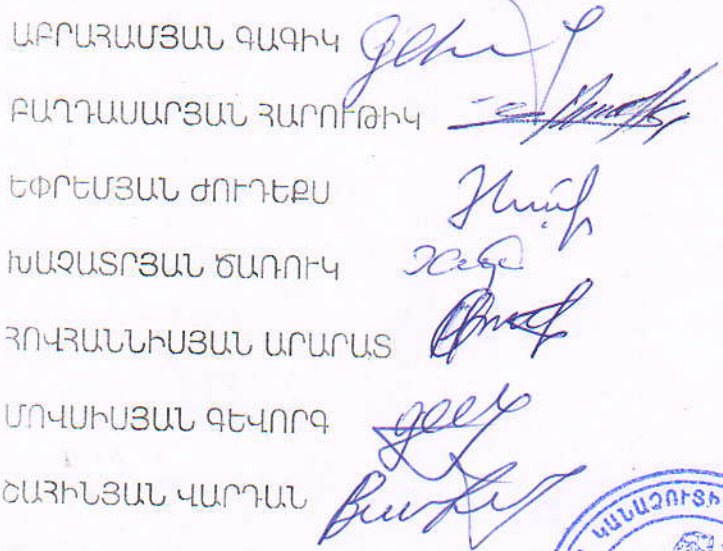 ԱԲՐԱՀԱՄՅԱՆ ԳԱԳԻԿ
ԲԱՂԴԱՍԱՐՅԱՆ ՀԱՐՈՒԹԻԿ
ԵՓՐԵՄՅԱՆ ԺՈՒԴԵՔՍ
ԽԱՉԱՏՐՅԱՆ ԾԱՌՈՒԿ
ՀՈՎՀԱՆՆԻՍՅԱՆ ԱՐԱՐԱՏ
ՄՈՎՍԻՍՅԱՆ ԳԵՎՈՐԳ
ՇԱՀԻՆՅԱՆ ՎԱՐԴԱՆ